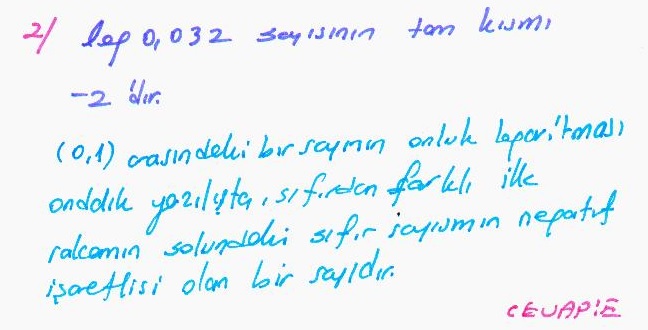 2/ log 0,032 sayısının tam kısmı
-2 'dır.
(0,1) arasındaki bir sayının onluk logaritması
ondalık yazılışta, sıfırdan farklı ilk
rakamın solundaki sıfır sayısının negatif
işaretlisi olan bir sayıdır.
CEVAP:E